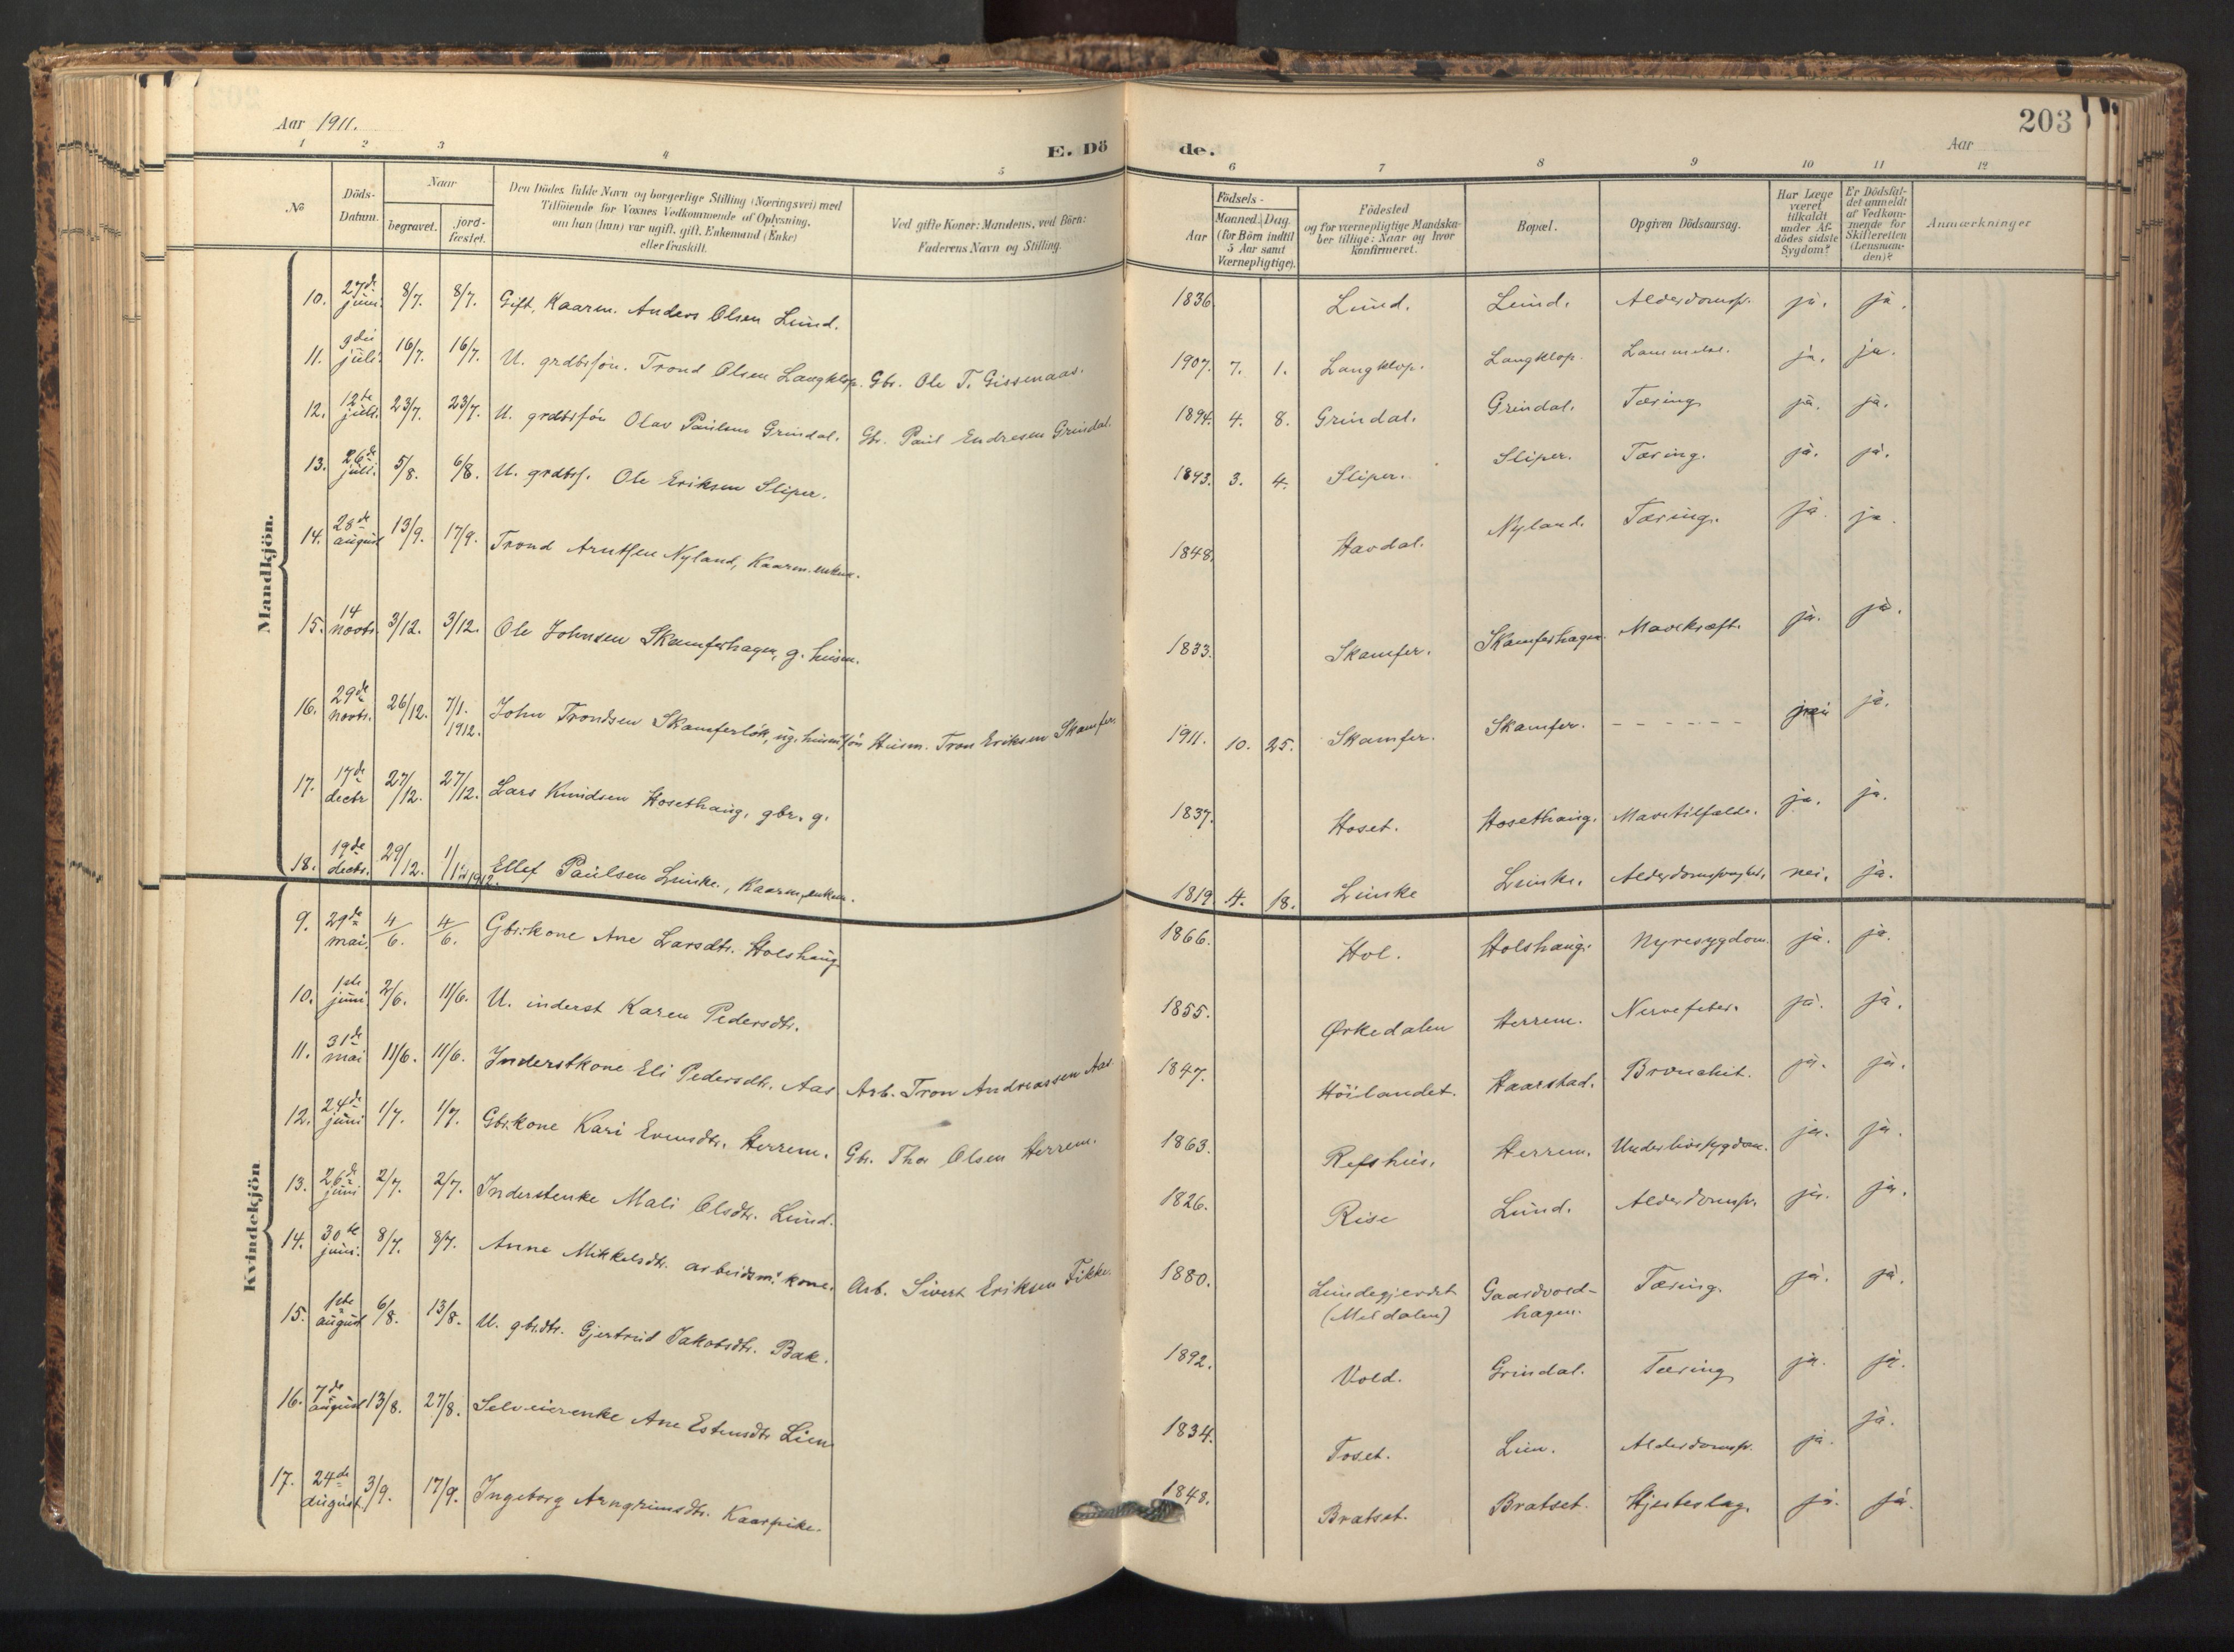 203
Aar 1911.
E. Dö de.
Aar
1 2 3 4 5 6 7 8 9 10 11 12
No
Döds-
Datum.
Naar
begravet.
jord-
fæstet.
Den Dödes fulde Navn og borgerlige Stilling (Næringsvei) med
Tilföiende for Voxnes Vedkommende af Oplysning,
om han (hun) var ugift, gift, Enkemand (Enke)
eller fraskilt.
Ved gifte Koner: Mandens, ved Börn:
Faderens Navn og Stilling.
Födsels-
Aar
Maaned. Dag.
(for Börn indtil
5 Aar samt
Værnepligtige).
Födested
og for værnepligtige Mandska-
ber tillige: Naar og hvor
konfirmeret.
Bopæl.
Opgiven Dödsaarsag.
Har Læge
været
tilkaldt
under Af-
dödes sidste
Sygdom?
Er Dödsfal-
det anmeldt
af Vedkom-
mende for
Skifteretten
(Lensman-
den)?
Anmærkninger
Mandkjön.
10. 27de juni. 8/7. 8/7. Gift, Kaarm. Anders Olsen Lund. 1836 Lund. Lund. Alderdomssv. ja. ja.
11. 9die juli. 16/7. 16/7. U. grdbrsøn. Trond Olsen Langklop. Gbr. Ole T. Gissenaas. 1907. 7. 1. Langklop. Langklop. Lammelse. ja. ja.
12. 12te juli. 23/7. 23/7. U. grdbrsøn Olav Paulsen Grindal. Gbr. Paul Endresen Grindal. 1894. 4. 8. Grindal. Grindal. Tæring ja. ja.
13. 26de juli. 5/8. 6/8. U. grdbrs. Ole Eriksen Sliper. 1893. 3. 4. Sliper. Sliper. Tæring. ja. ja.
14. 28de august 13/9. 17/9. Trond Arntsen Nyland, Kaarm. enkem. 1848. Havdal. Nyland. Tæring. ja. ja.
15. 14 novbr. 3/12. 3/12. Ole Johnsen Skamferhagen, g. husm. 1833. Skamfer. Skamferhagen. Mavekræft. ja. ja.
16. 29de novbr. 26/12. 7/1. 1912. John Trondsen Skamferløk, ug. husm.søn Husm. Tron Eriksen Skamfer. 1911. 10. 25. Skamfer. Skamfer. - - - - - - nei ja.
17. 17de decbr 27/12. 27/12. Lars Knudsen Hosethaug, gbr. g. 1837. Hoset. Hosethaug. Mavetilfælde. ja. ja.
18. 19de decbr. 29/12. 1/1 1912. Ellef Paulsen Lunke, Kaarm., enkem. 1819. 4. 18. Lunke Lunke. Alderdomssvaghed. nei. ja.
Kvindekjön
9. 29de mai. 4/6. 4/6. Gbr.kone Ane Larsdtr. Holshaug 1866. Hol. Holshaug. Nyresygdom. ja. ja.
10. 1ste juni 2/6. 11/6. U. inderst Karen Pedersdtr. 1855. Ørkedalen Herrem. Nervefeber. ja. ja.
11. 31de mai 11/6. 11/6. Inderstkone Eli Pedersdtr. Aas Arb. Tron Andreassen Aas. 1847. Höilandet. Haarstad. Bronchit. ja. ja.
12. 24de juni 1/7. 1/7. Gbr.kone Kari Evensdtr. Herrem. Gbr. Thor Olsen Herrem. 1863. Refshus. Herrem. Underlivssygdom. ja. ja.
13. 26de juni 2/7. 2/7. Inderstenke Mali Olsdtr. Lund. 1826. Rise Lund. Alderdomssv. ja. ja.
14. 30te juni. 8/7. 9/7. Anne Mikkelsdtr. arbeidsm. kone. Arb. Sivert Eriksen Fikke. 1880. Lundegjerdet (Meldalen) Gaardvoldhagen. Tæring. ja. ja.
15. 1ste august 6/8. 13/8. U. gbr.dtr. Gjertrud Jakobsdtr. Bak. 1892. Vold. Grindal. Tæring ja. ja.
16. 7de august 13/8. 27/8. Selveierenke Ane Estensdtr Lien 1834. Toset. Lien. Alderdomssv. ja. ja.
17. 24de august. 3/9. 17/9. Ingeborg Arngrimsdtr. Kaarpike. 1848. Bratset. Bratset. Hjerteslag. ja. ja.